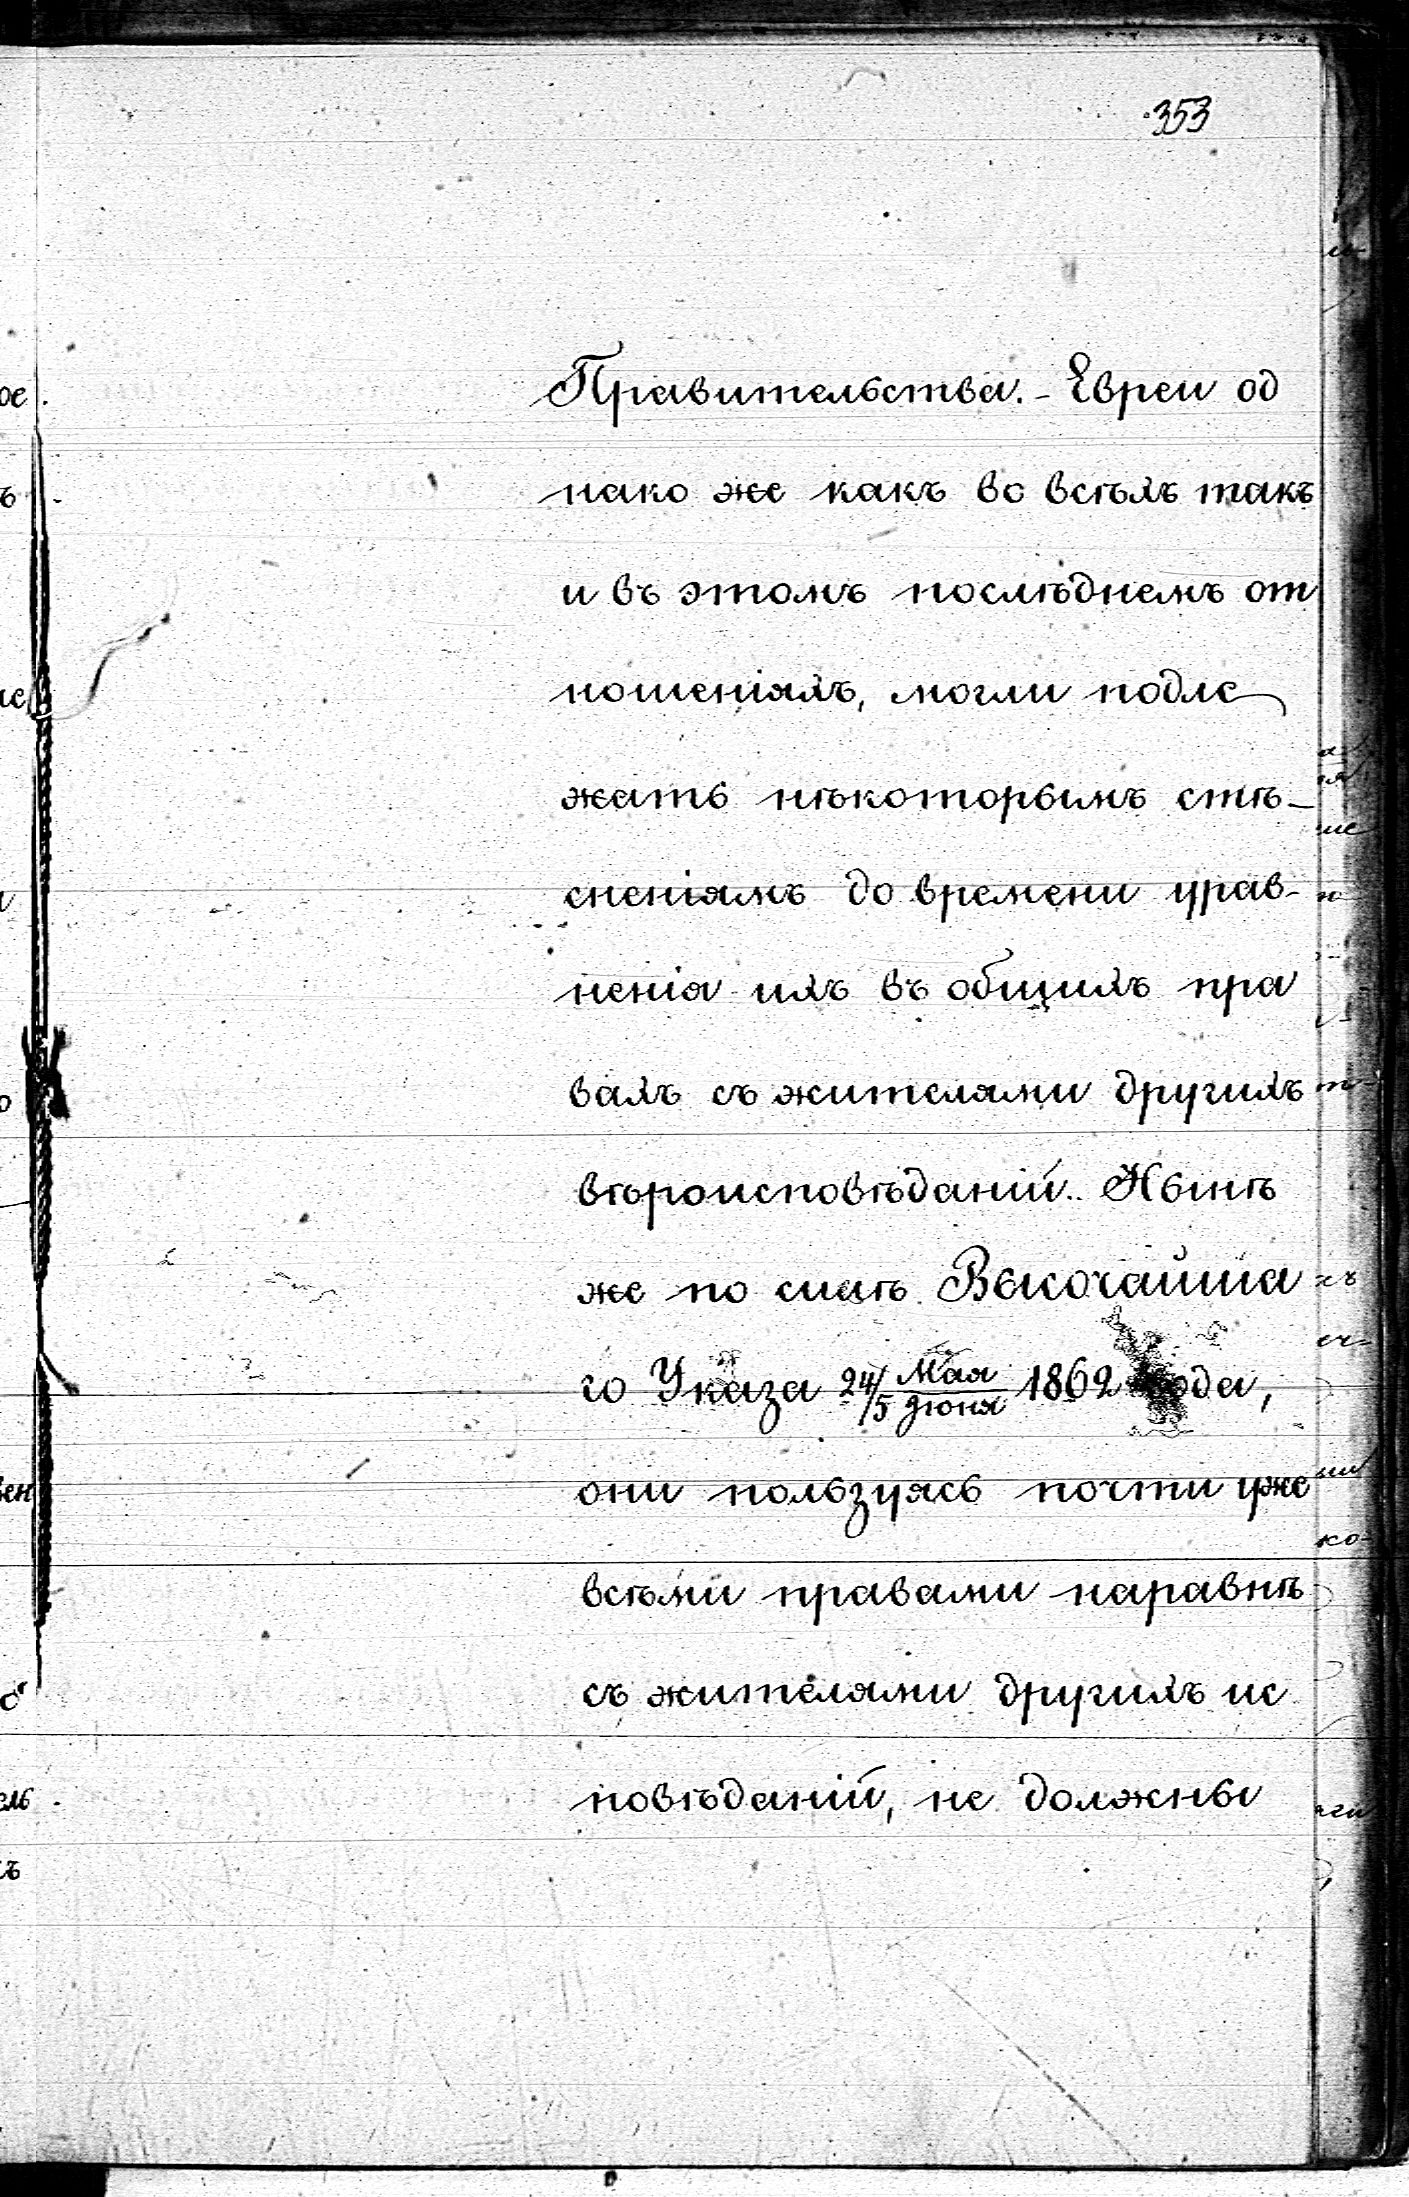 353
Правительства. - Евреи од
нако же какъ во всѣхъ такъ
и въ этомъ послѣднемъ от
ношеніяхъ, могли подле
жать нѣкоторымъ стѣ-
сненіямъ до времени урав-
ненія ихъ въ общихъ пра
вахъ съ жителями другихъ
вѣроисповѣданій. Нынѣ
же по силѣ Высочайша
го Указа 24/5 Мая/Іюня 1862 года,
они пользуясь почти уже
всѣми правами наравнѣ
съ жителями другихъ ис
повѣданій, не должны